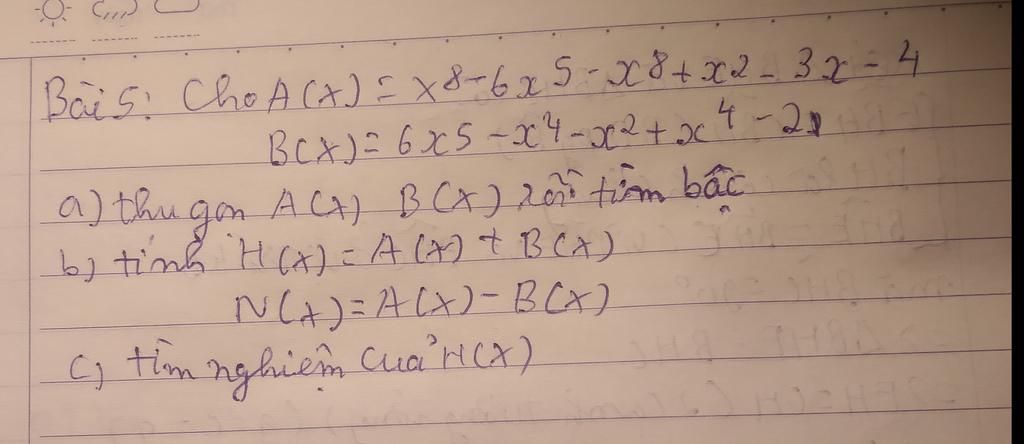 Bài 5: Cho A(x) = x8 - 6x5 - x8 + x2 - 3x - 4
B(x) = 6x5 - x4 - x2 + x4 - 21
a) thu gọn A(x) B(x) rồi tìm bậc
b) tính H(x) = A(x) + B(x)
N(x) = A(x) - B(x)
c) tìm nghiệm của H(x)